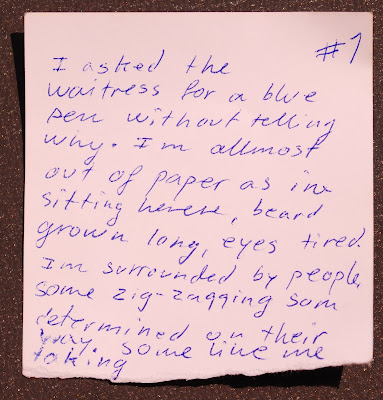 #1
I asked the
waitress for a blue
pen without telling
why. I'm allmost
out of paper as im
sitting herere, beard
grown long, eyes tired.
I'm surrounded by people,
some zig-zagging som
determined on their
way, some like me
taking